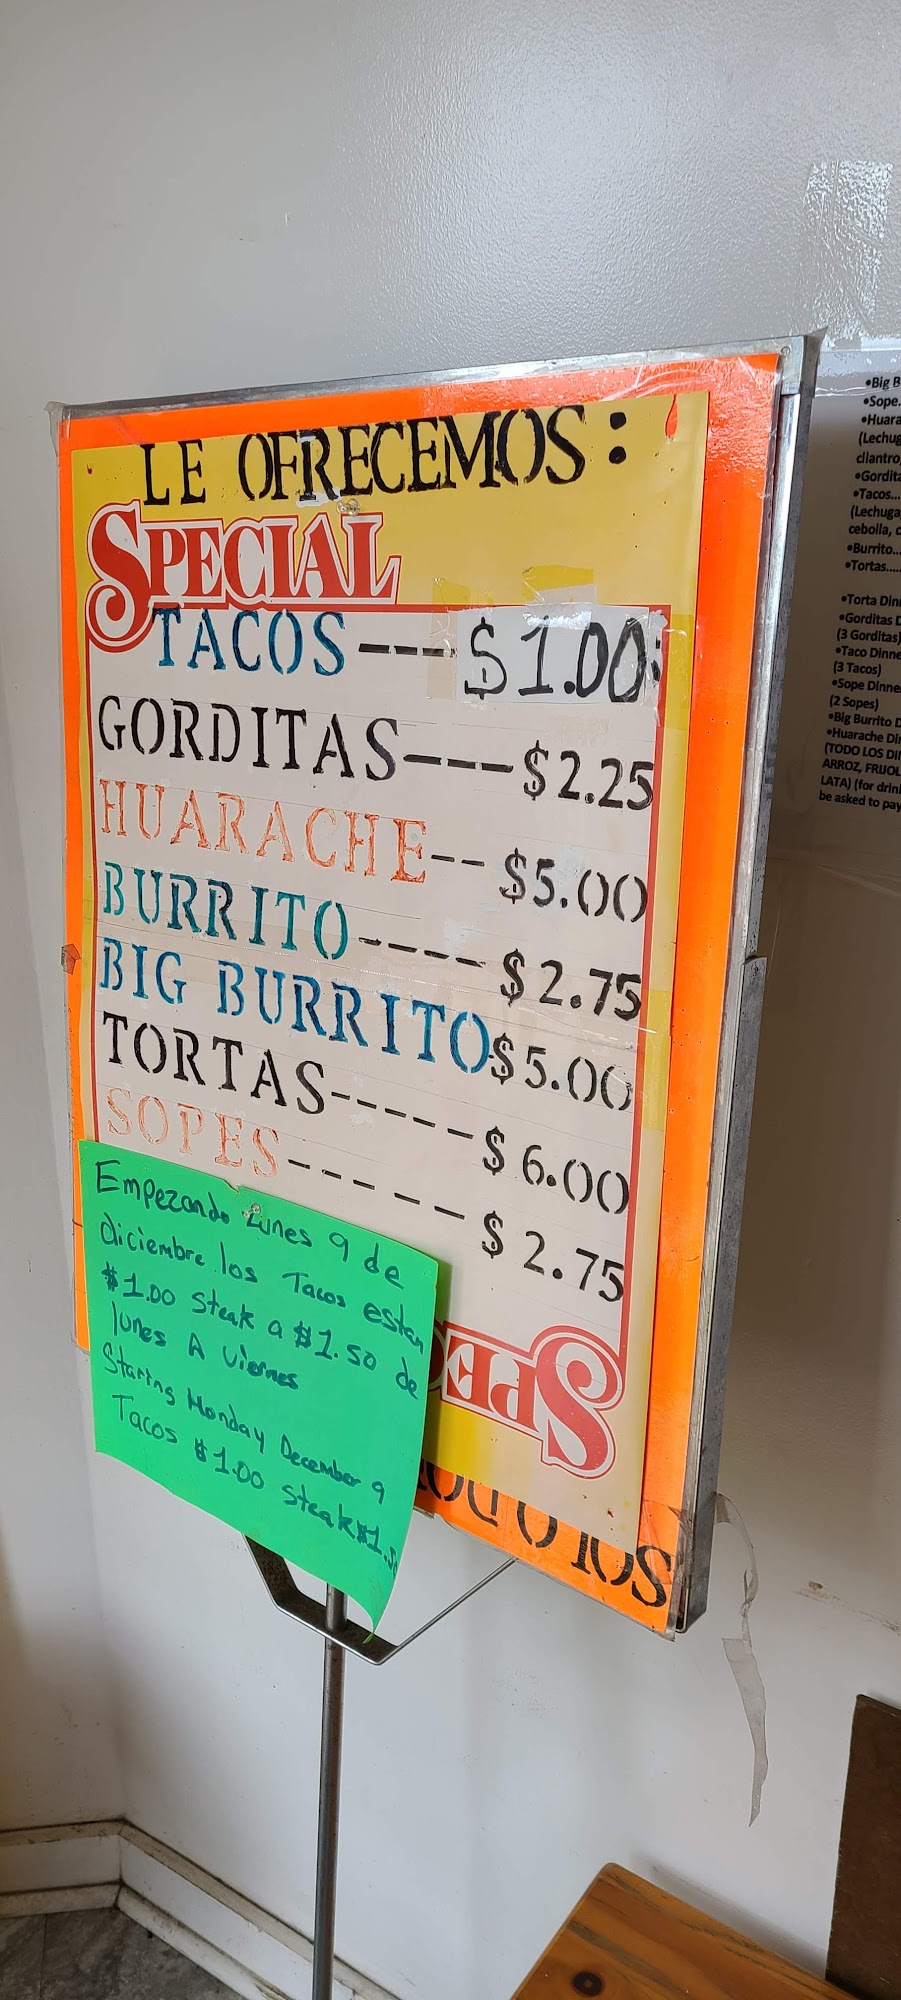 LE OFRECEMOS:
SPECIAL
TACOS---$1.00
GORDITAS---$2.25
HUARACHE--$5.00
BURRITO----$2.75
BIG BURRITO $5.00
TORTAS-----$6.00
SOPES-----$2.75
Empezando Lunes 9 de
diciembre los Tacos estan
$1.00 Steak a $1.50 de
lunes A viernes
Staring Monday December 9
Tacos $1.00 Steak $1.50
SPEC
SOLO
•Big B
•Sope.
•Huara
(Lechug
cilantro,
•Gordita
•Tacos...
(Lechuga,
cebolla, c
•Burrito...
•Tortas.....
•Torta Din
•Gorditas D
(3 Gorditas)
•Taco Dinne
(3 Tacos)
•Sope Dinne
(2 Sopes)
•Big Burrito D
•Huarache Di
(TODO LOS DI
ARROZ, FRIJOL
LATA) (for drin
be asked to pay